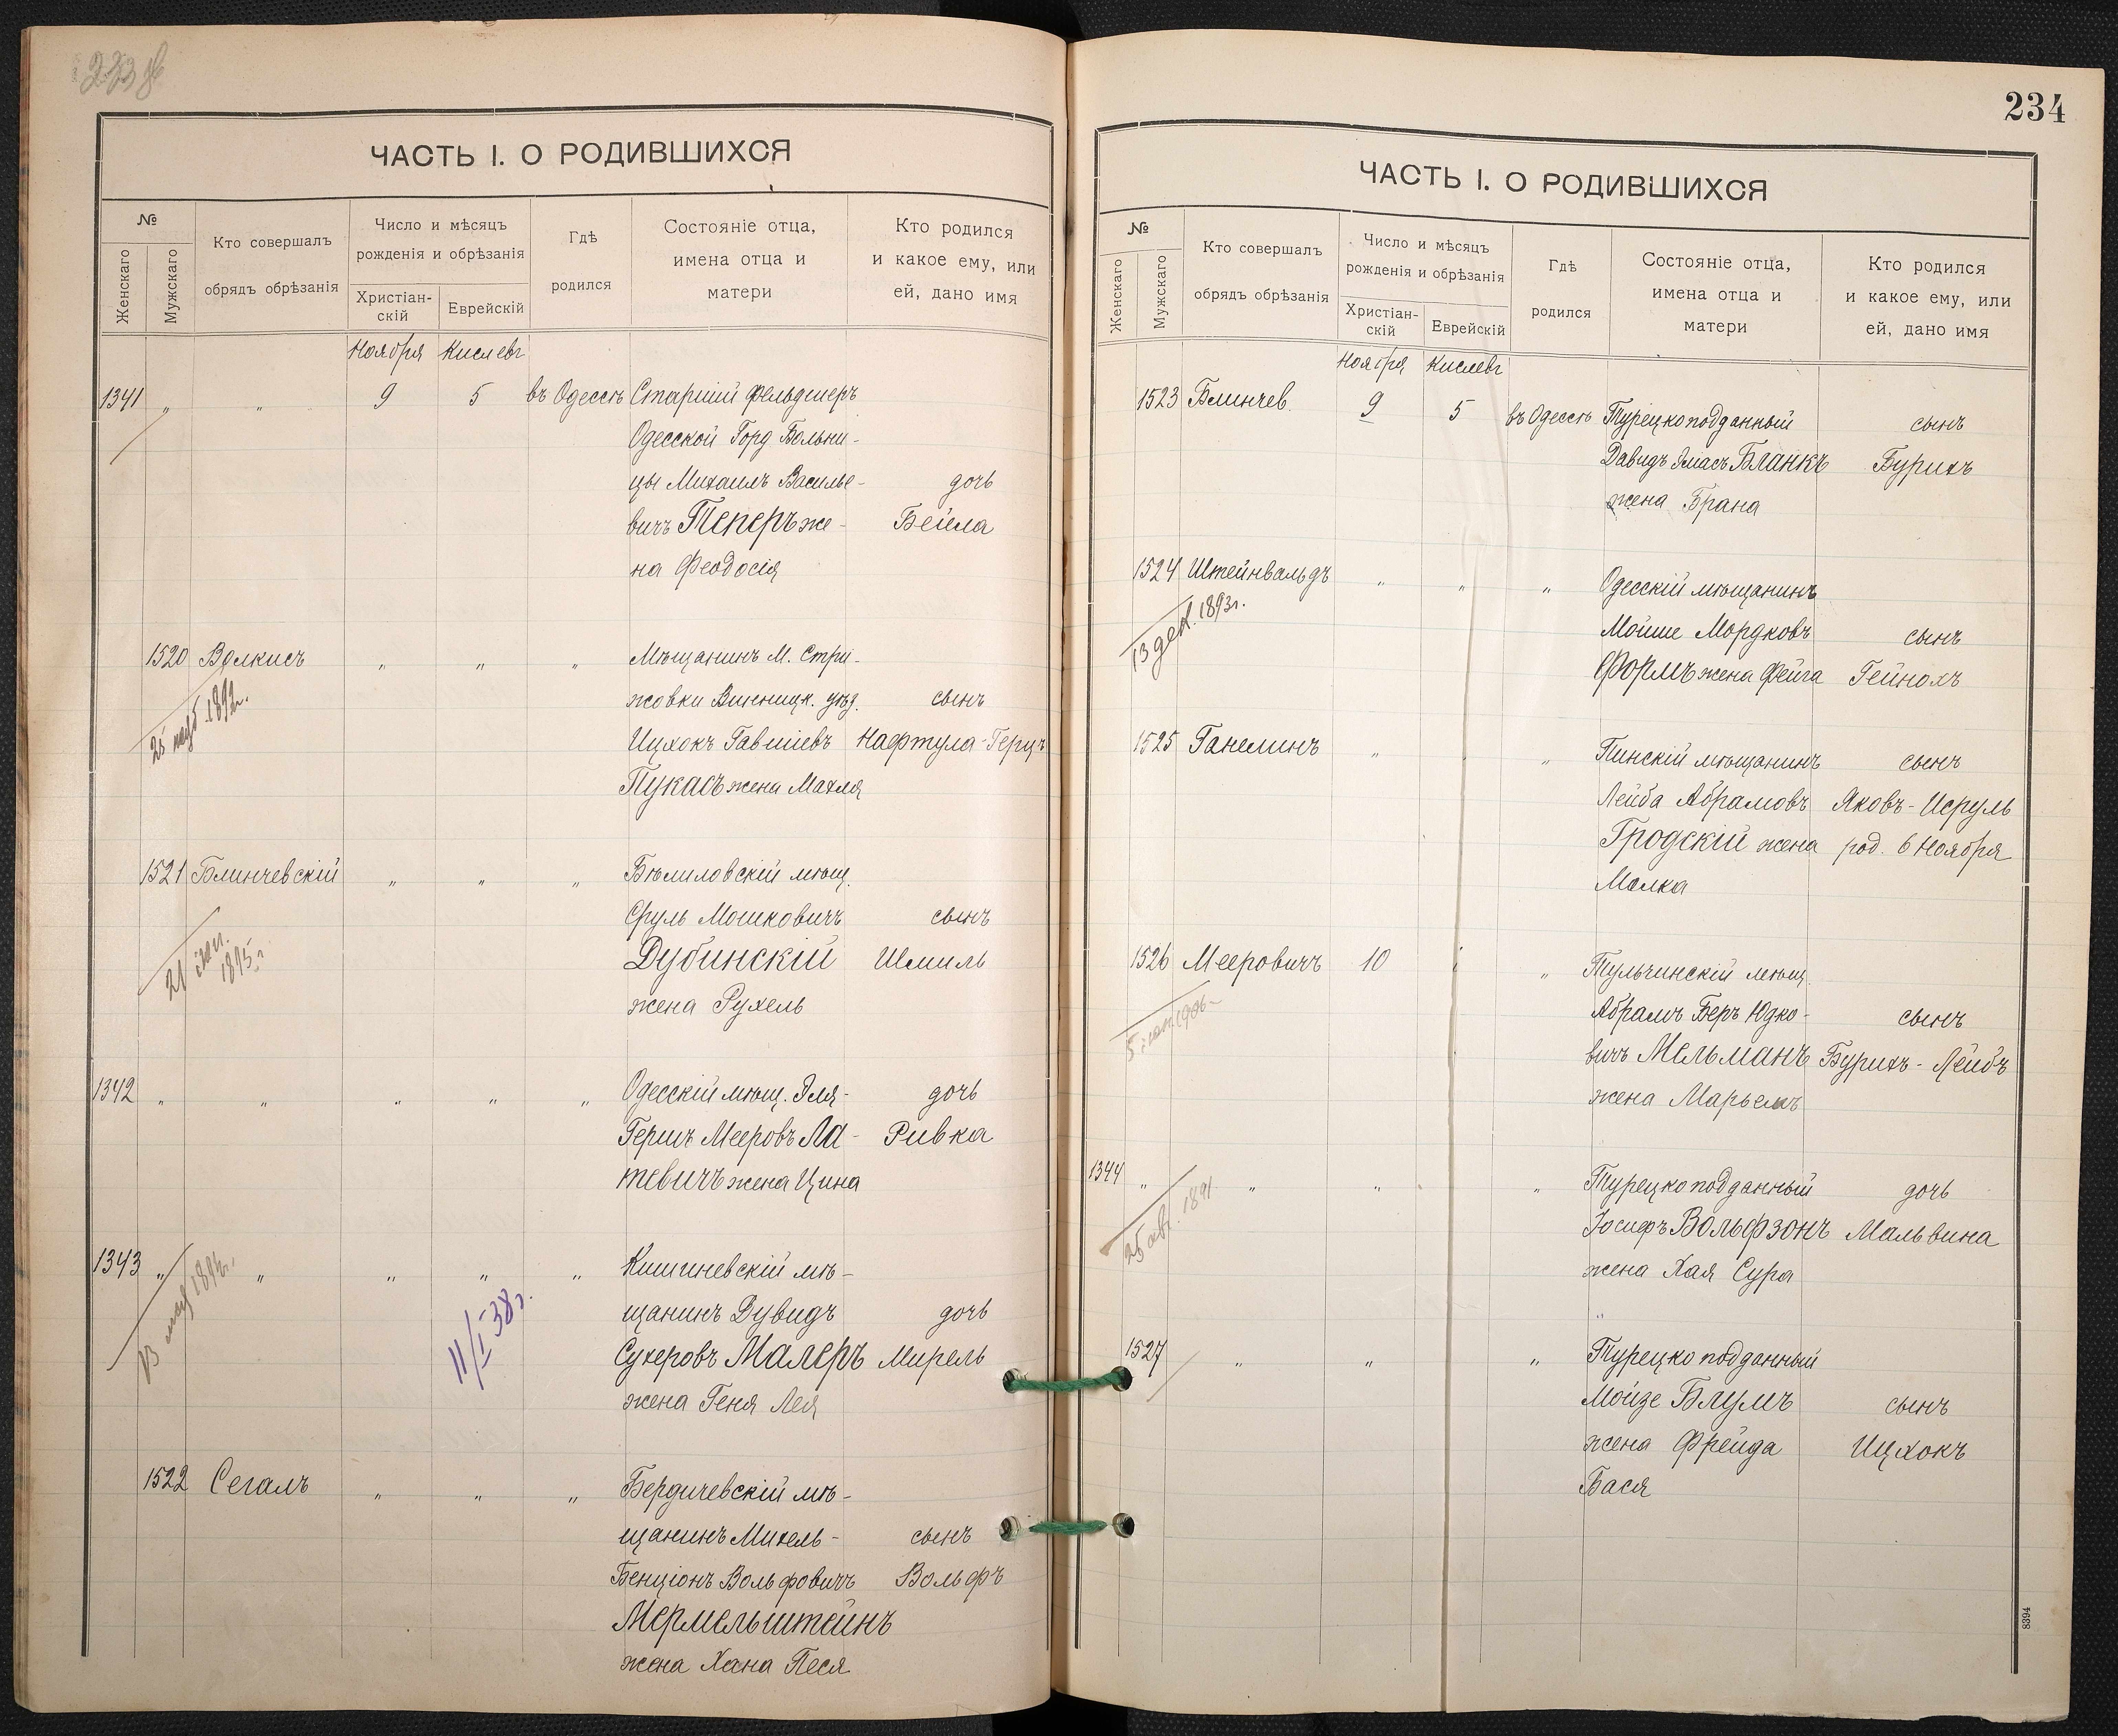 ЧАСТЬ I. О РОДИВШИХСЯ
№
Женскаго
Мужскаго
Кто совершалъ
обрядъ обрѣзанія
Число и мѣсяцъ
рожденія и обрѣзанія
Христіан-
скій
Еврейскій
Гдѣ
родился
Состояніе отца,
имена отца и
матери
Кто родился
и какое ему, или
ей, дано имя
Ноября Кислевъ
1341 „ „ 9 5 въ Одессѣ Старшій фельдшеръ
Одесской Горд Больни-
цы Михаилъ Василье- дочь
вичъ Пекеръ же- Бейла
на Феодосія
1520 Волкисъ „ „ „ Мѣщанинъ М. Стри-
жовки Винницк. уѣзд. сынъ
25 1892г.
Ицхокъ Гавшіевъ Нафтула-Герцъ
Пукасъ жена Махля
1521 Блинчевскій „ „ „ Бѣлиловскій мѣщ.
Сруль Мошковичъ сынъ
21 1895г.
Дубинскій Шмиль
жена Рухель
1342 „ „ „ „ „ Одесскій мѣщ. Эля- дочь
Гершъ Мееровъ Ла- Ривка
тевичъ жена Цина
1343 „ „ „ „ „ Кишиневскій мѣ-
13 мая
щанинъ Дувидъ дочь
11/I 38г.
Сухеровъ Малеръ Мирель
жена Геня Лея
1522 Сегалъ „ „ „ Бердичевскій мѣ-
щанинъ Михель- сынъ
Бенціонъ Вольфовичъ Вольфъ
Мермельштейнъ
жена Хана Песя
234
ЧАСТЬ I. О РОДИВШИХСЯ
№
Женскаго
Мужскаго
Кто совершалъ
обрядъ обрѣзанія
Число и мѣсяцъ
рожденія и обрѣзанія
Христіан-
скій
Еврейскій
Гдѣ
родился
Состояніе отца,
имена отца и
матери
Кто родился
и какое ему, или
ей, дано имя
Ноября Кислевъ
1523 Блинчев. 9 5 въ Одессѣ Турецкоподданный сынъ
Давидъ Эліасъ Бланкъ Бурихъ
жена Брана
1524 Штейнвальдъ „ „ „ Одесскій мѣщанинъ
13 дек. 1893г.
Мойше Мордковъ сынъ
Формъ жена Фейга Гейнохъ
1525 Ганелинъ „ „ Пинскій мѣщанинъ сынъ
Лейба Абрамовъ Яковъ-Исруль
Гродскій жена род. 6 Ноября
Малка
1526 Мееровичъ 10 „ Тульчинскій мѣщ.
5 1906
Абрамъ Беръ Юдко- сынъ
вичъ Мельманъ Бурихъ-Лейбъ
жена Марьемъ
1344 „ „ „ „ Турецкоподданный дочь
25 авг. 1891
Іосифъ Вольфзонъ Мальвина
жена Хая Сура
1527 „ „ „ Турецкоподданный
Мойзе Блумъ сынъ
жена Фрейда Ицхокъ
Бася
8394